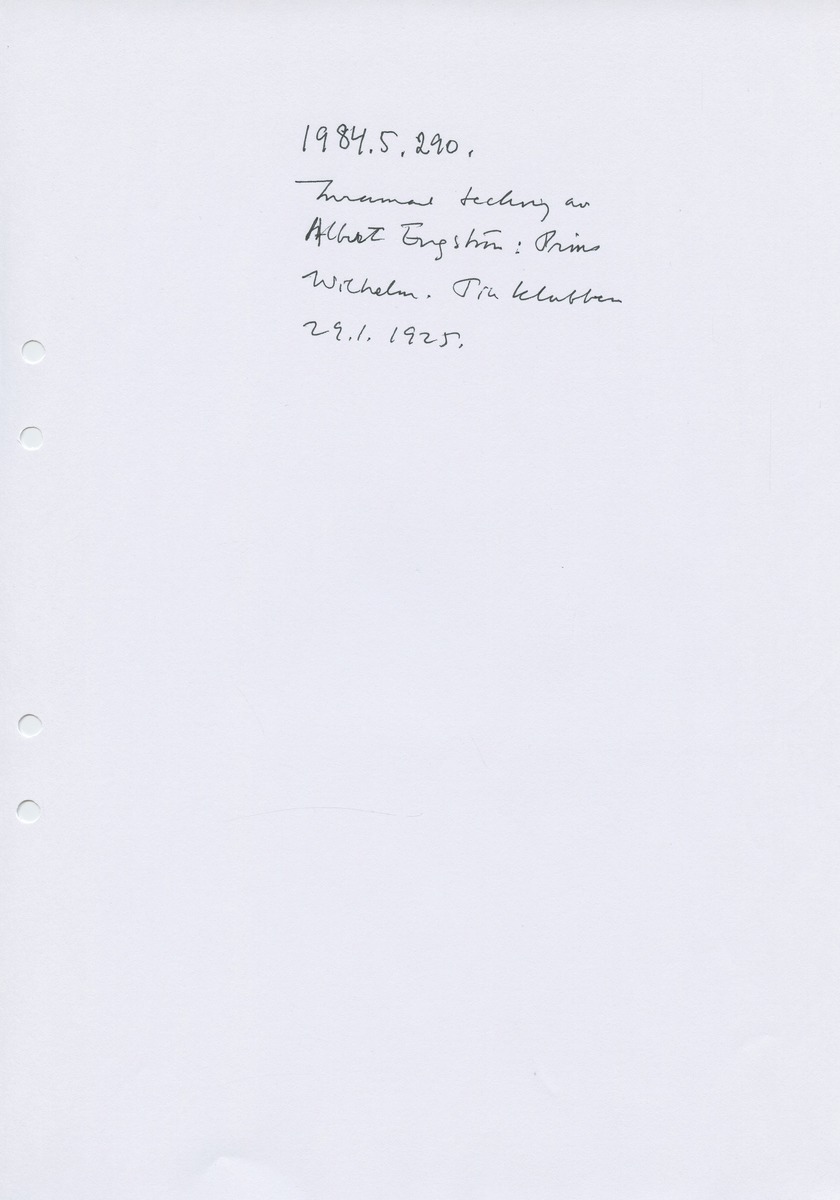 1984.5.290.
Inramad teckning av
Albert Engström: Prins
Wilhelm. Tia klubben
29.1.1925.